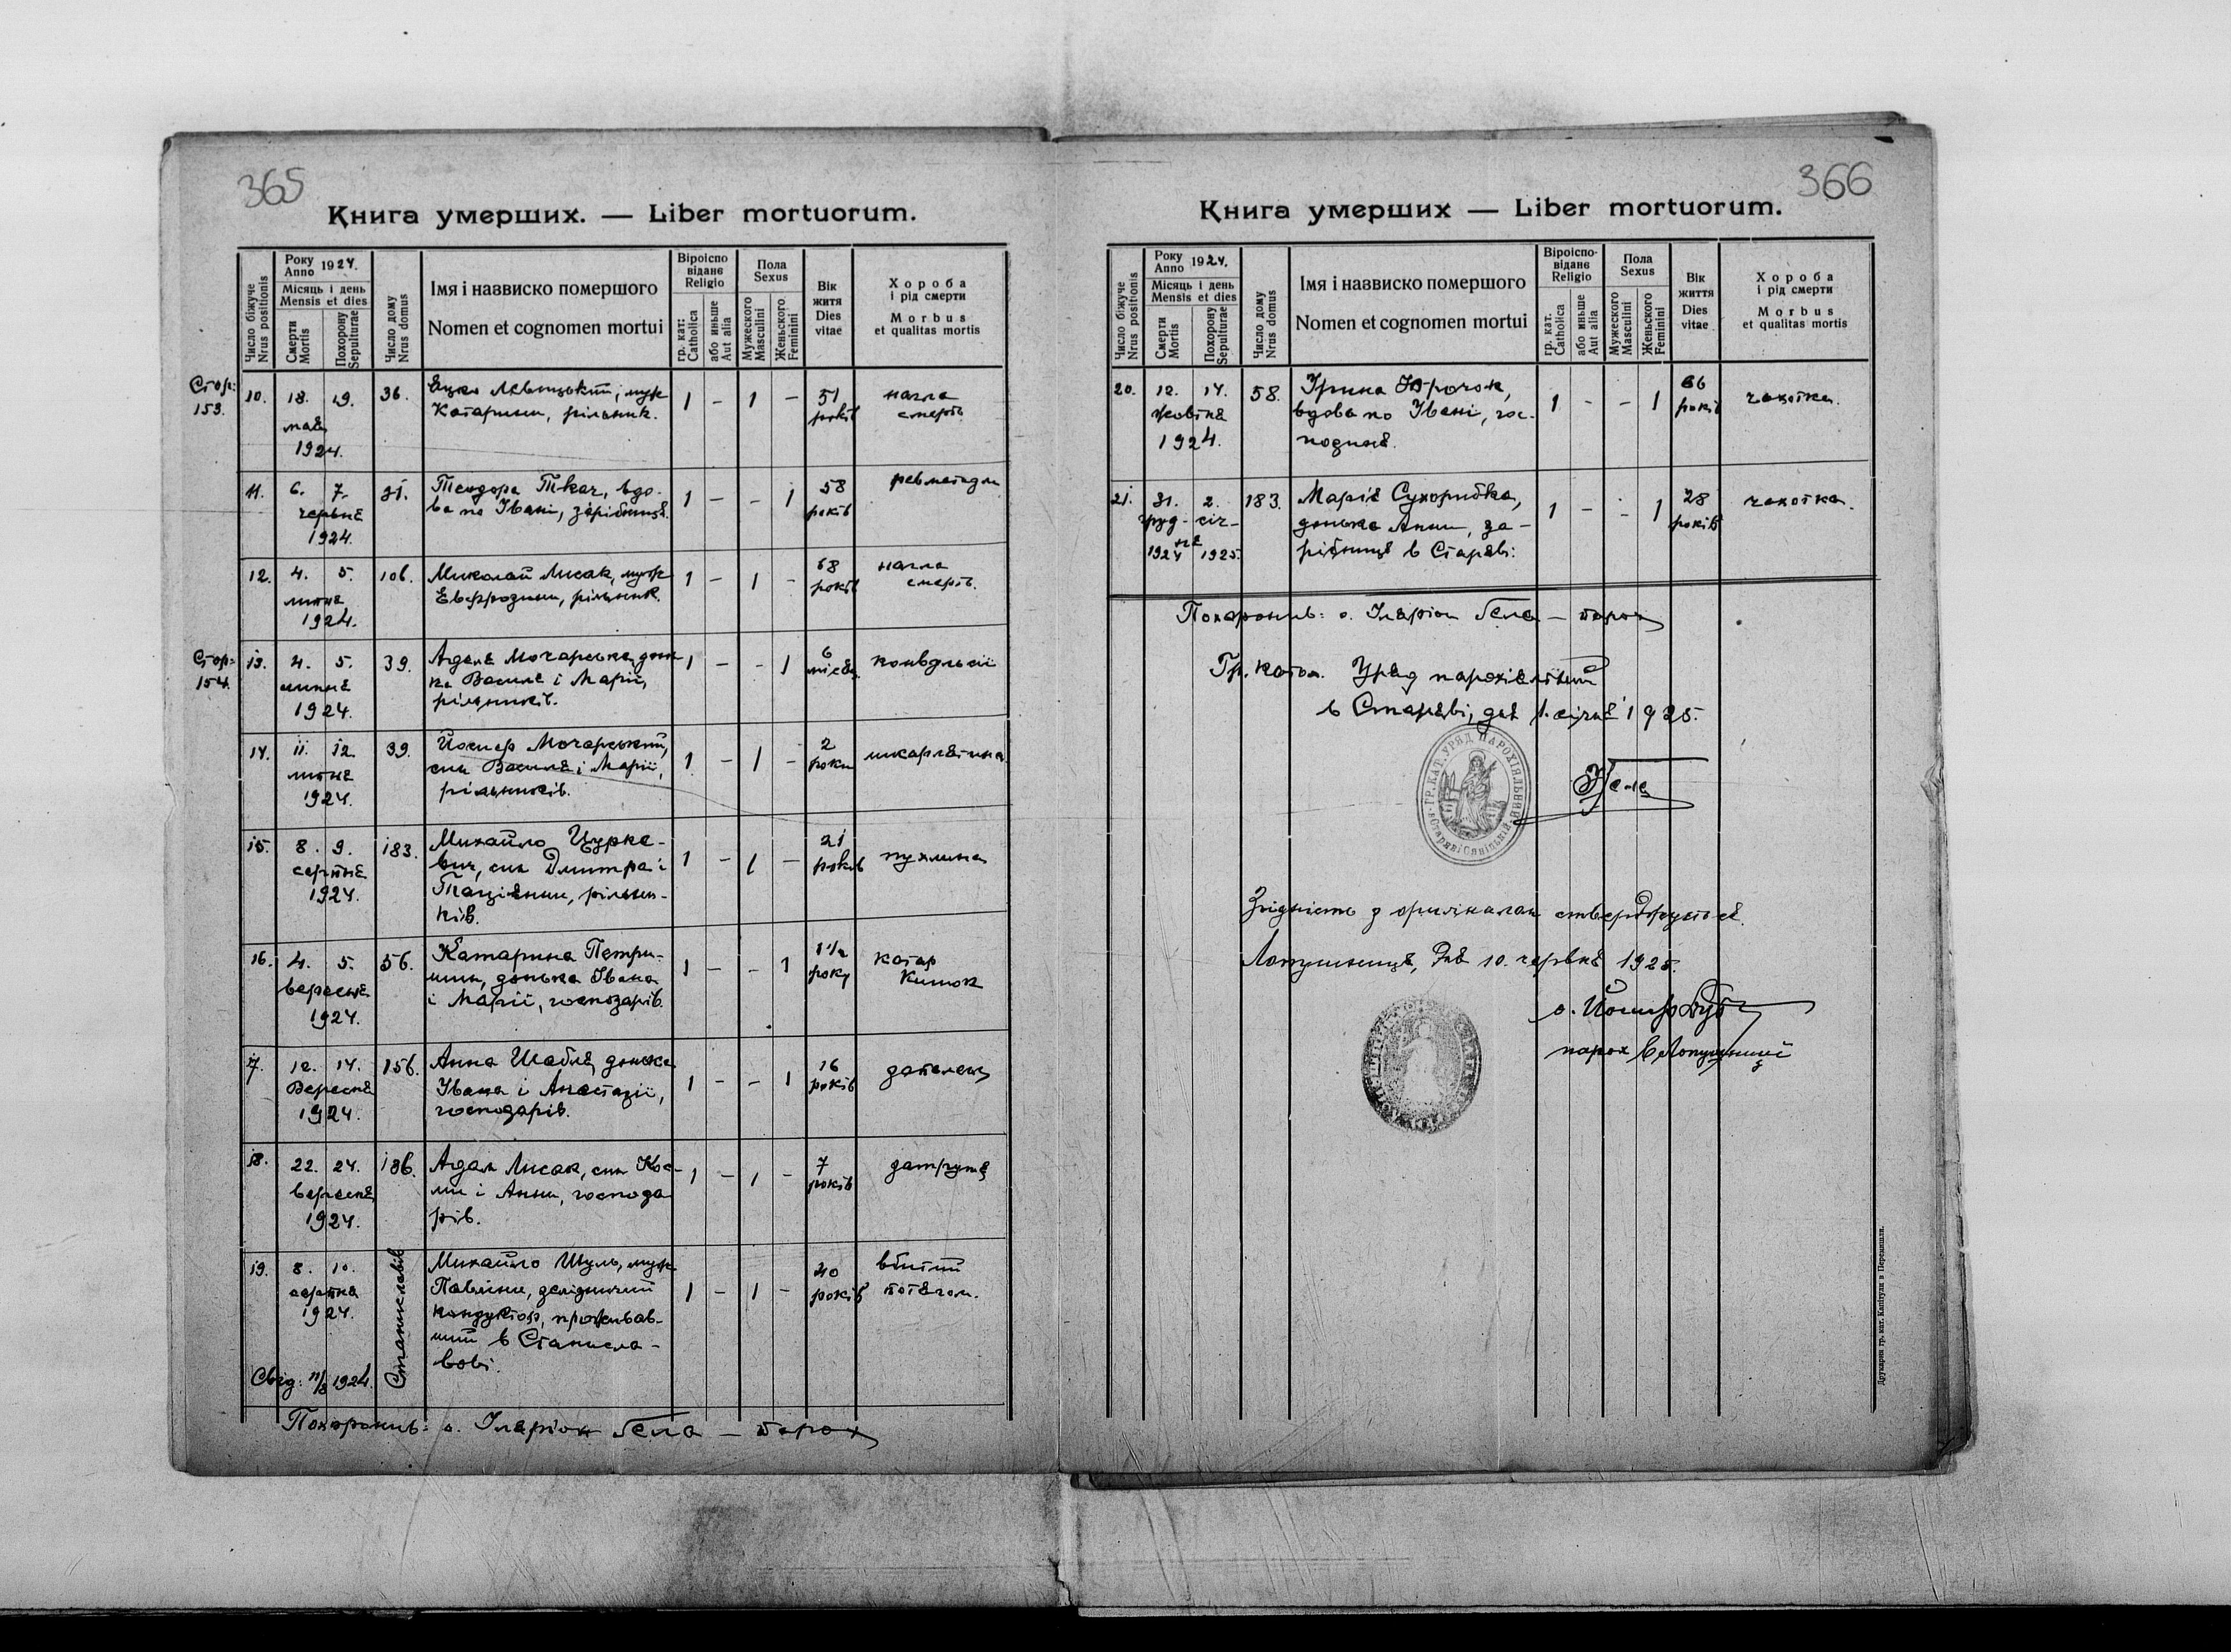 365
Книга умерших. — Liber mortuorum.
Число біжуче
Nrus positionis
Року
Anno 1924.
Місяць і день
Mensis et dies
Смерти
Mortis
Похорону
Sepulturae
Число дому
Nrus domus
Імя і назвиско помершого
Nomen et cognomen mortui
Віроісповідане
Religio
гр. кат:
Catholica
або иньше
Aut alia
Пола
Sexus
Мужеского
Masculini
Женьского
Feminini
Вік
житя
Dies
vitae
Хороба
і рід смерти
Morbus
et qualitas mortis
Стор:
153.
10. 18. 19. 36. муж 1 – 1 – 51 нагла
мая Катарини, рільник. років смерть
1924.
11. 6. 7. 31. Теодора Ткач, вдо- 1 – – 1 58
червня ва по Івані, зарібниця. років
1924.
12. 4. 5. 106. Миколай Лисак, муж 1 – 1 – 68 нагла
липня Евфрозини, рільник. років смерть.
1924.
Стор:
154.
13. 4. 5. 39. донь- 1 – – 1 6 конвульсії
липня ка Василя і Марії,
1924. рільників.
14. 11. 12. 39. Йосиф Мочарський, 1 – 1 – 2 шкарлятина
липня син Василя і Марії, роки
1924. рільників.
15. 8. 9. 183. Михайло Цурке- 1 – 1 – 21 пухлина
серпня вич, син Дмитра і років
1924. Тациянни, рільни-
ків.
16. 4. 5. 56. Катарина Петри- 1 – – 1 1 1/2 катар
вересня шин, донька Івана року кишок
1924. і Марії, господарів.
17. 12. 14. 156. Анна Шабля, донька 1 – – 1 16
Вересня Івана і Анастазії, років
1924. господарів.
18. 22. 24. 186. Адам Лисак, син Кос- 1 – 1 – 7
вересня ми і Анни, господа років
1924. рів.
19. 8. 10. Станиславів Михайло Шуль, муж 1 – 1 – 40 вбитий
серпня Павліни, залізничий років потягом.
1924. кондуктор, проживав-
ший в Станисла-
вові.
Свід: 11/8 1924.
Похоронив: о. Іларіон Гела — парох
366
Книга умерших — Liber mortuorum.
Число біжуче
Nrus positionis
Року
Anno 1924.
Місяць і день
Mensis et dies
Смерти
Mortis
Похорону
Sepulturae
Число дому
Nrus domus
Імя і назвиско помершого
Nomen et cognomen mortui
Віроісповідане
Religio
гр. кат.
Catholica
або иньше
Aut alia
Пола
Sexus
Мужеского
Masculini
Женьского
Feminini
Вік
життя
Dies
vitae
Хороба
і рід смерти
Morbus
et qualitas mortis
20. 12. 14. 58. Ірина 1 – – 1 66 чахотка.
жовтня вдова по Івані, гос- років
1924. подиня.
21. 31. 2. 183. Марія Сухорибка, 1 – – 1 28 чахотка.
груд- січ- донька Анни, за- років
ня
1924 1925. рібниця в Стряві:
Похоронив: о. Іларіон Гела — парох
Гр. катол. Уряд парохіяльний
в Старяві, дня 1. січня 1925.
ГР. КАТ. УРЯД ПАРОХІЯЛЬНИЙ
Гела
Згідність з оригіналом стверджується.
Лопушниця, Дня 10. червня 1925.
о. Йосиф
парох в Лопушниці
Друкарня гр. кат. Капітули в Перемишли.